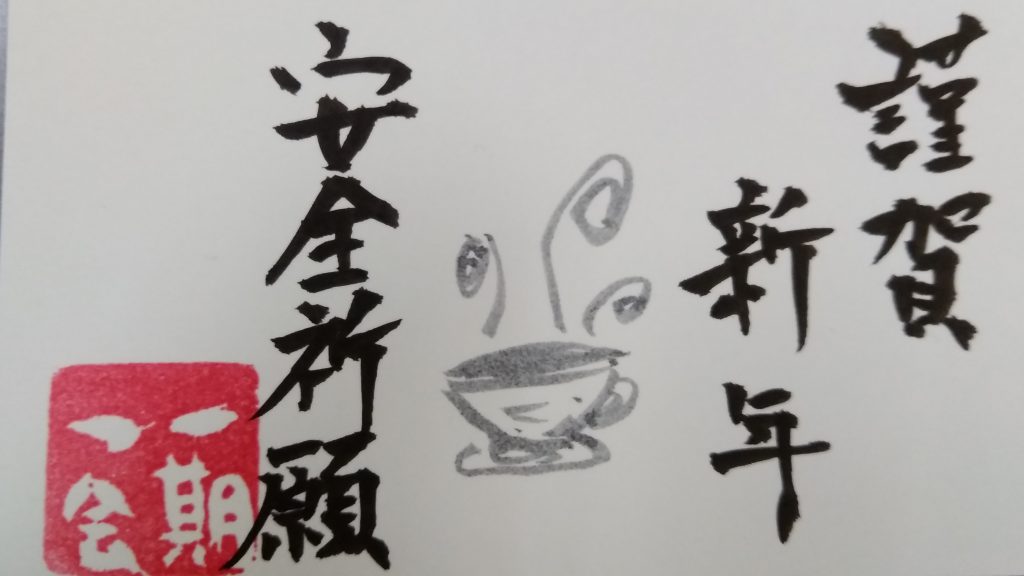 謹賀
新年
安全祈願
一期
一会